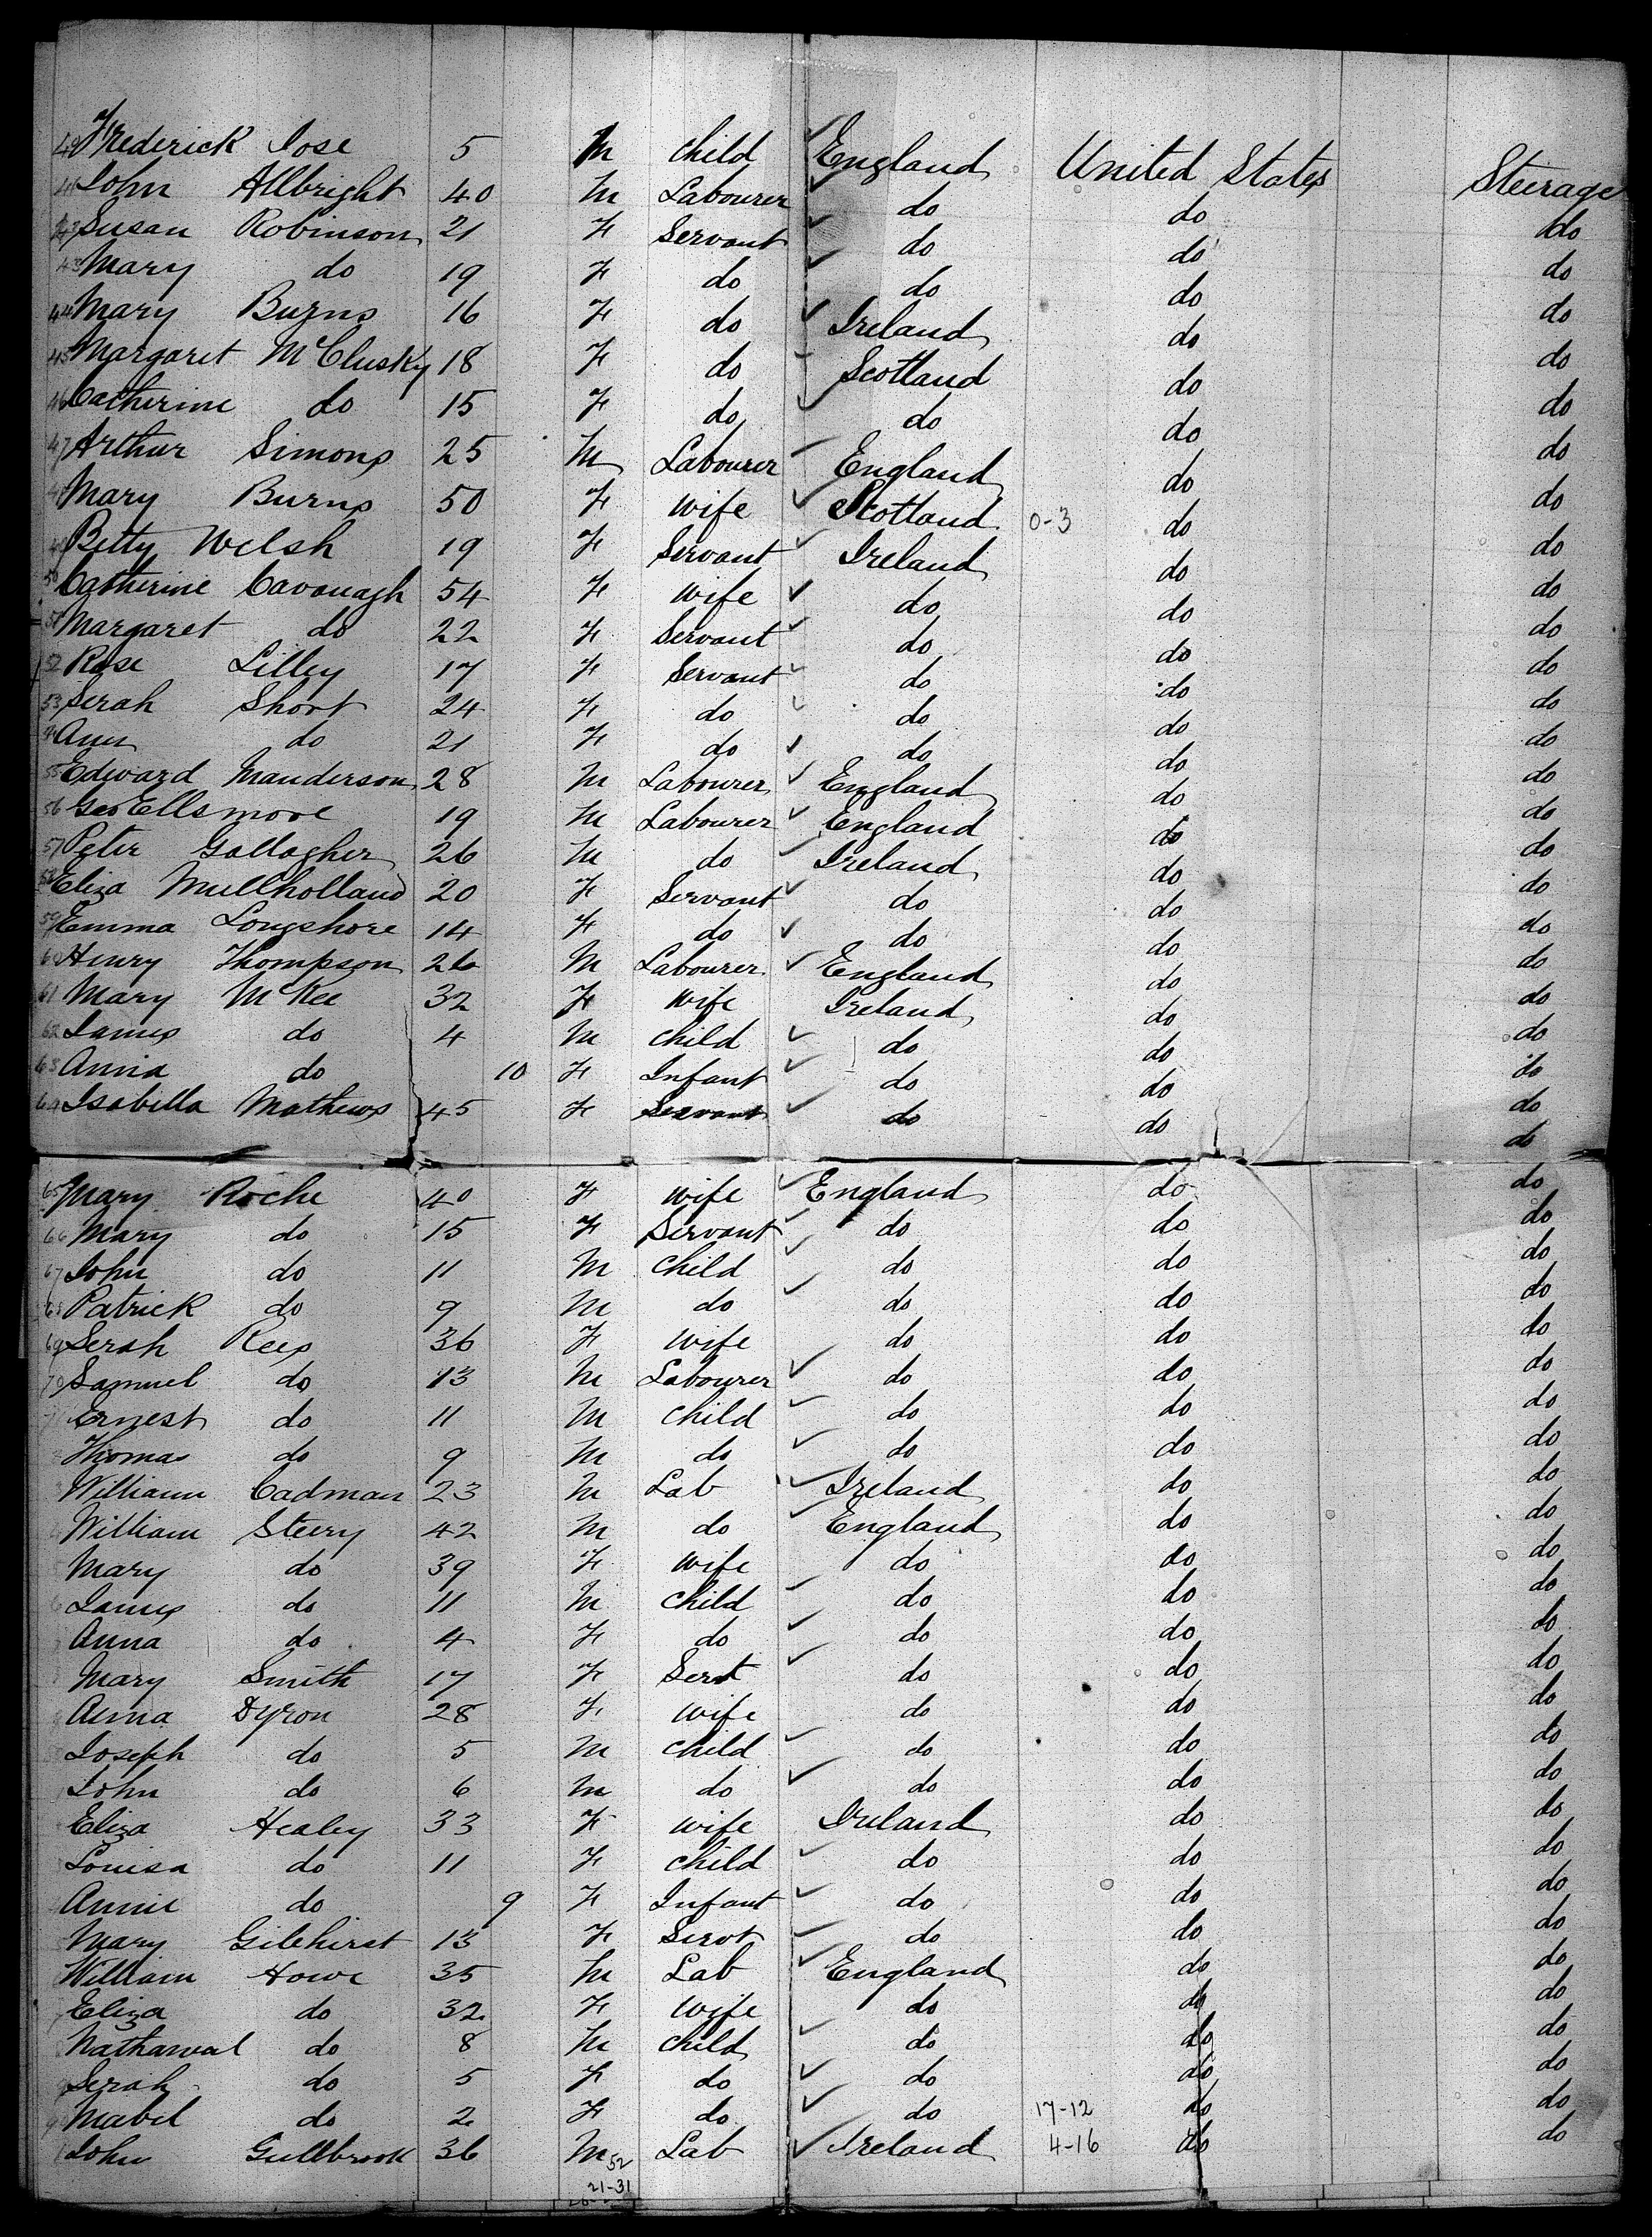 Frederick Jose 5 M child England United States Steerage
John Allbright 40 M Labourer do do do
Susan Robinson 21 F Servant do do do
43 Mary do 19 F do do do do
44 Mary Burns 16 F do Ireland do do
45 Margaret McClusky 18 F do Scotland do do
46 Catherine do 15 F do do do do
47 Arthur Simons 25 M Labourer England do do
Mary Burns 50 F wife Scotland 0-3 do do
Betty Welsh 19 F Servant Ireland do do
50 Catherine Cavanagh 54 F wife do do do
51 Margaret do 22 F Servant do do do
52 Rose Lilley 17 F Servant do do do
53 Serah Short 24 F do do do do
Ann do 21 F do do do do
55 Edward Manderson 28 M Labourer England do do
56 Geo Ellsmore 19 M Labourer England do do
57 Peter Gallagher 26 M do Ireland do do
58 Eliza Mullholland 20 F Servant do do do
59 Emma Longshore 14 F do do do do
60 Henry Thompson 26 M Labourer England do do
61 Mary McKee 32 F Wife Ireland do do
62 James do 4 M child do do do
63 Annia do 10 F Infant do do do
64 Isabella Mathews 45 F Servant do do do
65 Mary Roche 40 F wife England do do
66 Mary do 15 F Servant do do do
67 John do 11 M child do do do
68 Patrick do 9 M do do do do
69 Serah Rees 36 F wife do do do
70 Samuel do 13 M Labourer do do do
Ernest do 11 M child do do do
Thomas do 9 M do do do do
William Cadman 23 M Lab Ireland do do
William Steery 42 M do England do do
Mary do 39 F wife do do do
James do 11 M child do do do
Anna do 4 F do do do do
Mary Smith 17 F Servt do do do
Anna Dyron 28 F wife do do do
Joseph do 5 M child do do do
John do 6 M do do do do
Eliza Healey 33 F wife Ireland do do
Louisa do 11 F child do do do
Annie do 9 F Infant do do do
Mary Gilchirst 13 F Servt do do do
William Howe 35 M Lab England do do
Eliza do 32 F wife do do do
Nathanial do 8 M child do do do
Serah do 5 F do do do do
Mabel do 2 F do do 17-12 do do
John Gullbrook 36 M Lab Ireland 4-16 do do
52
21-31